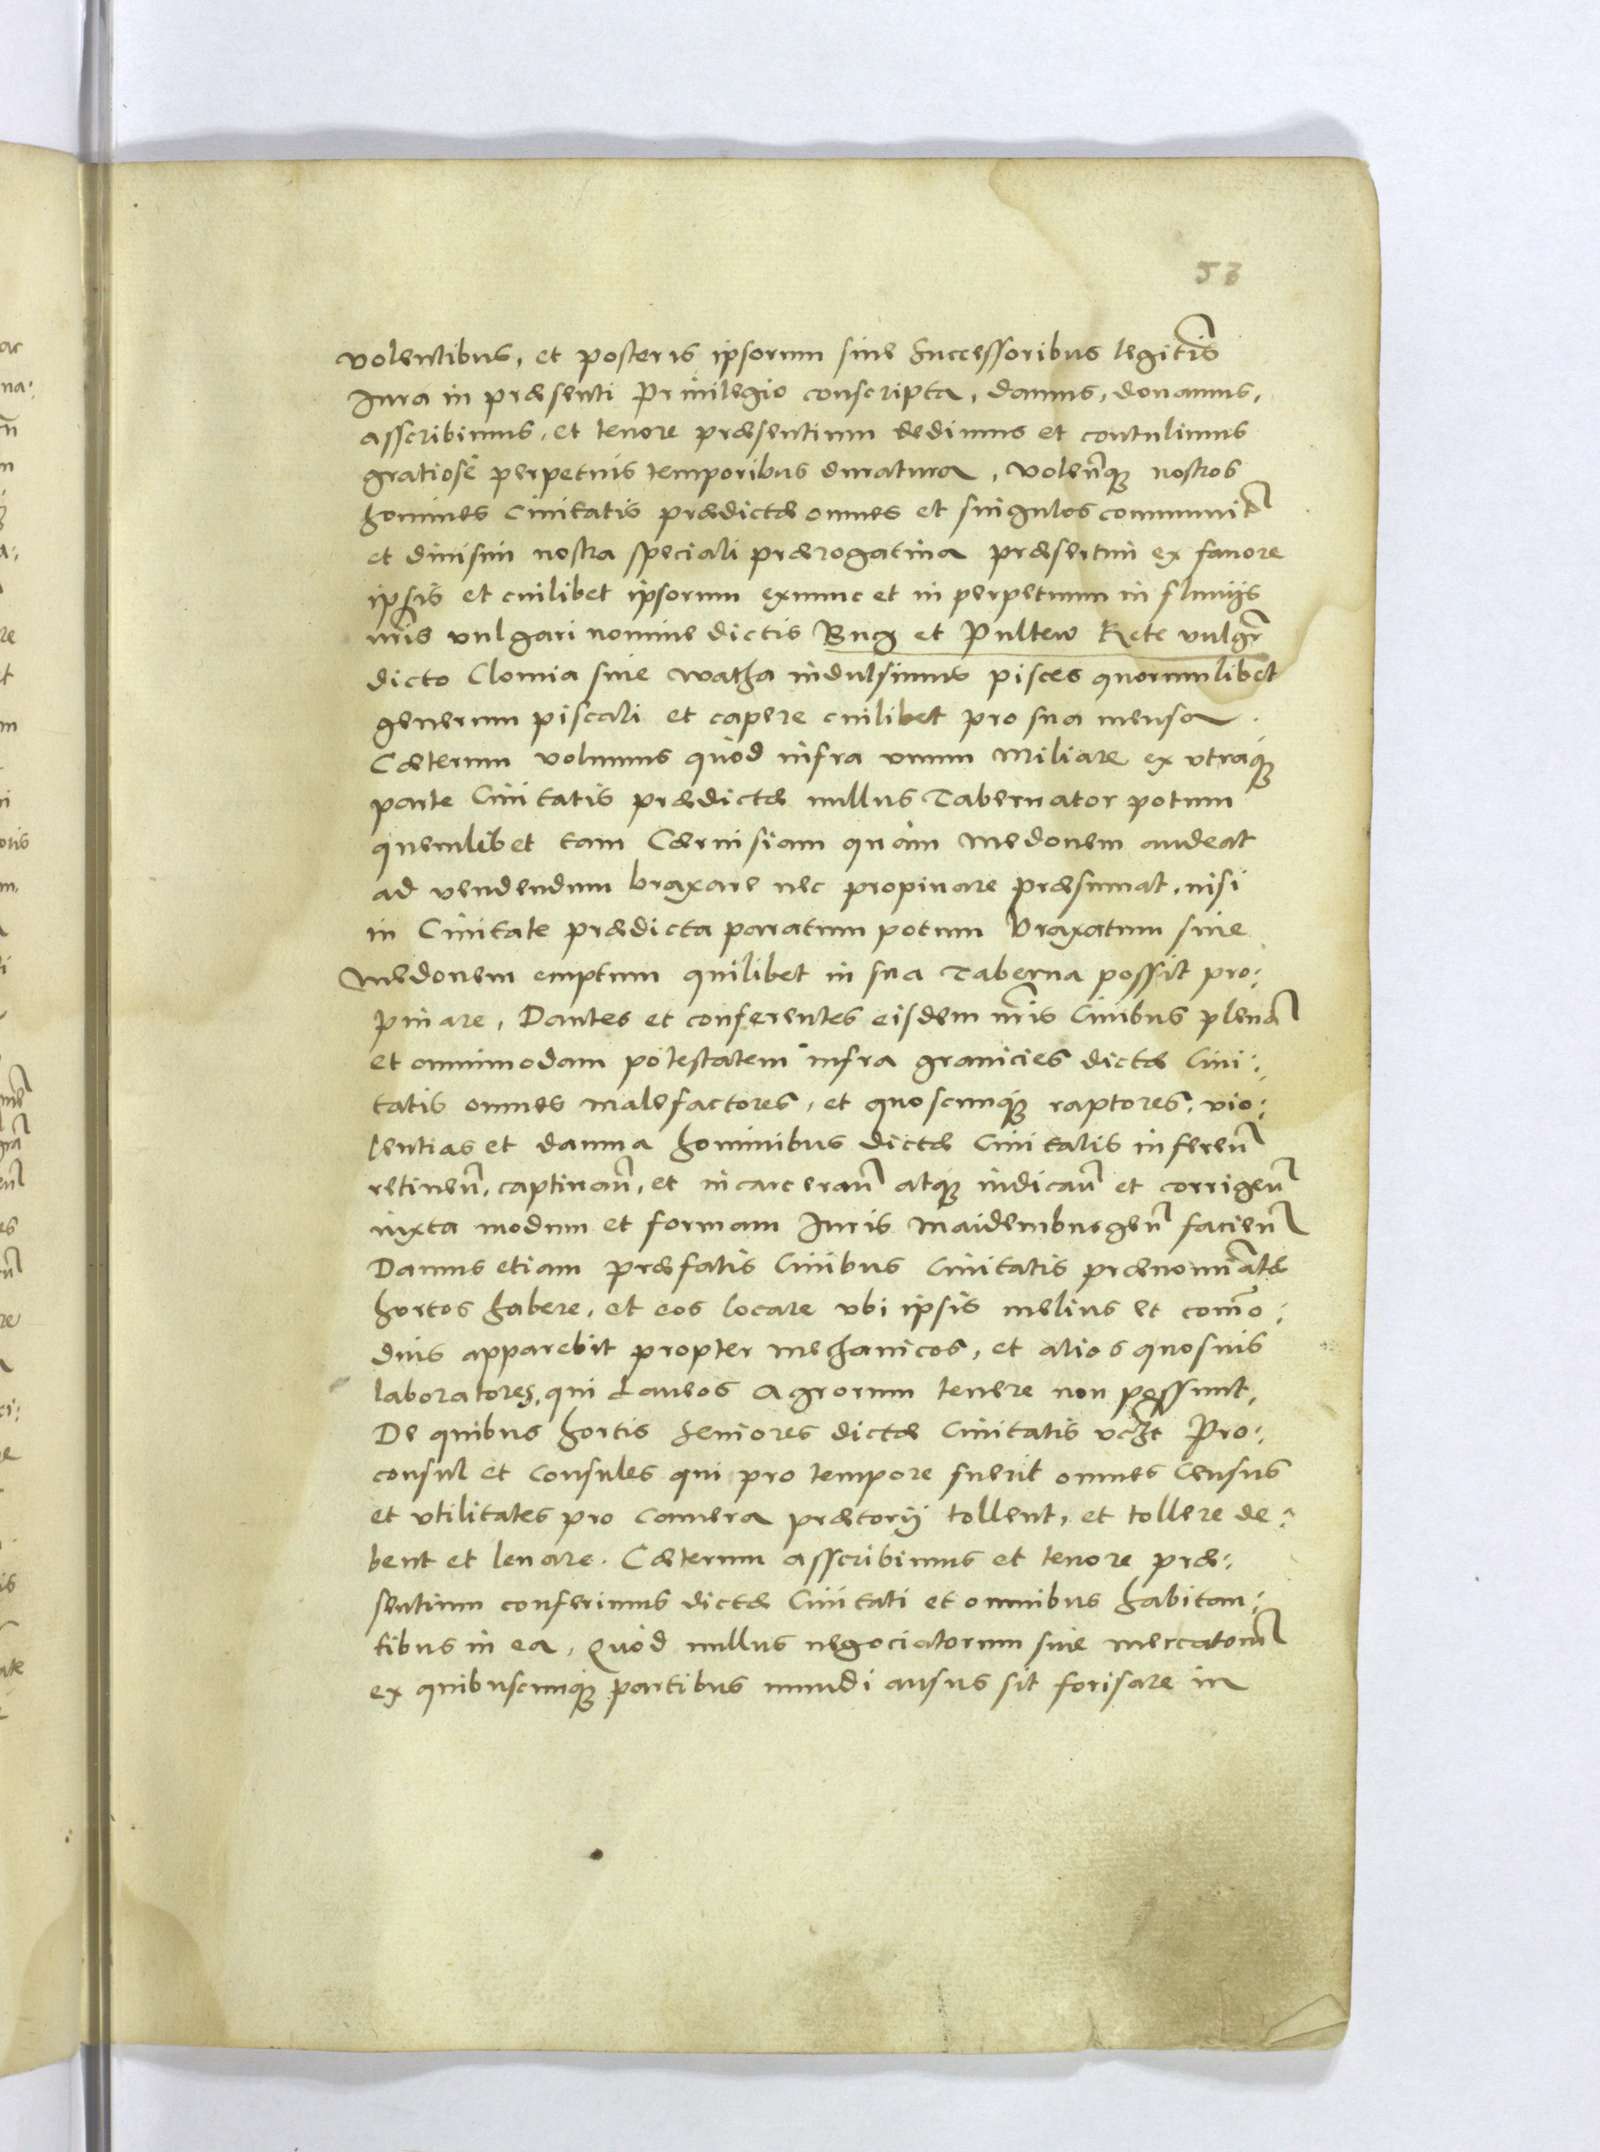 53
volentibus, et posteris ipsorum siue Successoribus legitĩs
Iura in præsenti Priuilegio conscripta, damus, donamus,
asscribimus, et tenore præsentium dedimus et contulimus
gratiosè perpetuis temporibus duratura, Volen̄que nostros
homines Ciuitatis prædictæ omnes et singulos communit̃
et diuisim nostra speciali prærogatiua præsertim ex fauore
ipsis et cuilibet ipsorum exnunc et in perpetuum in fluuijs
nr̃is vulgari nomine dictis Bug et Pultew Rete vulgr̃
dicto Clomia siue watha indulsimus pisces quorumlibet
generum piscali et capere cuilibet pro sua mensa.
Cæterum volumus quòd infra vnum Miliare ex vtraque
parte Ciuitatis prædictæ nullus Tabernator potum
quemlibet tam Cæruisiam quàm Medonem audeat
ad vendendum braxare nec propinare præsumat, nisi
in Ciuitate prædicta paratum potum braxatum siue
Medonem emptum quilibet in sua Taberna possit pro:
pinare, Dantes et conferentes eisdem nr̃is Ciuibus plenã
et omnimodam potestatem infra granicies dictæ Ciui:
tatis omnes malefactores, et quoscunque raptores, vio:
lentias et damna hominibus dictæ Ciuitatis inferen̄
retinen̄, captiuan̄, et incarceran̄ atque iudican̄ et corrigen̄
iuxta modum et formam Iuris Maidemburgen̄ facien̄
Damus etiam præfatis Ciuibus Ciuitatis prænominatæ
hortos habere, et eos locare vbi ipsis melius et com̃o:
dius apparebit propter mechanicos, et alios quosuis
laboratores, qui Laneos Agrorum tenere non possunt,
De quibus hortis Seniores dictæ Ciuitatis vcz̃t Pro:
consul et Consules qui pro tempore fuerit omnes Census
et vtilitates pro Camera prætorij tollent, et tollere de:
bent et leuare. Cæterum asscribimus et tenore præ:
sentium conferimus dictæ Ciuitati et omnibus habitan:
tibus in ea, Quòd nullus negociatorum siue mercatorum̃
ex quibuscunque partibus mundi ausus sit forisare in